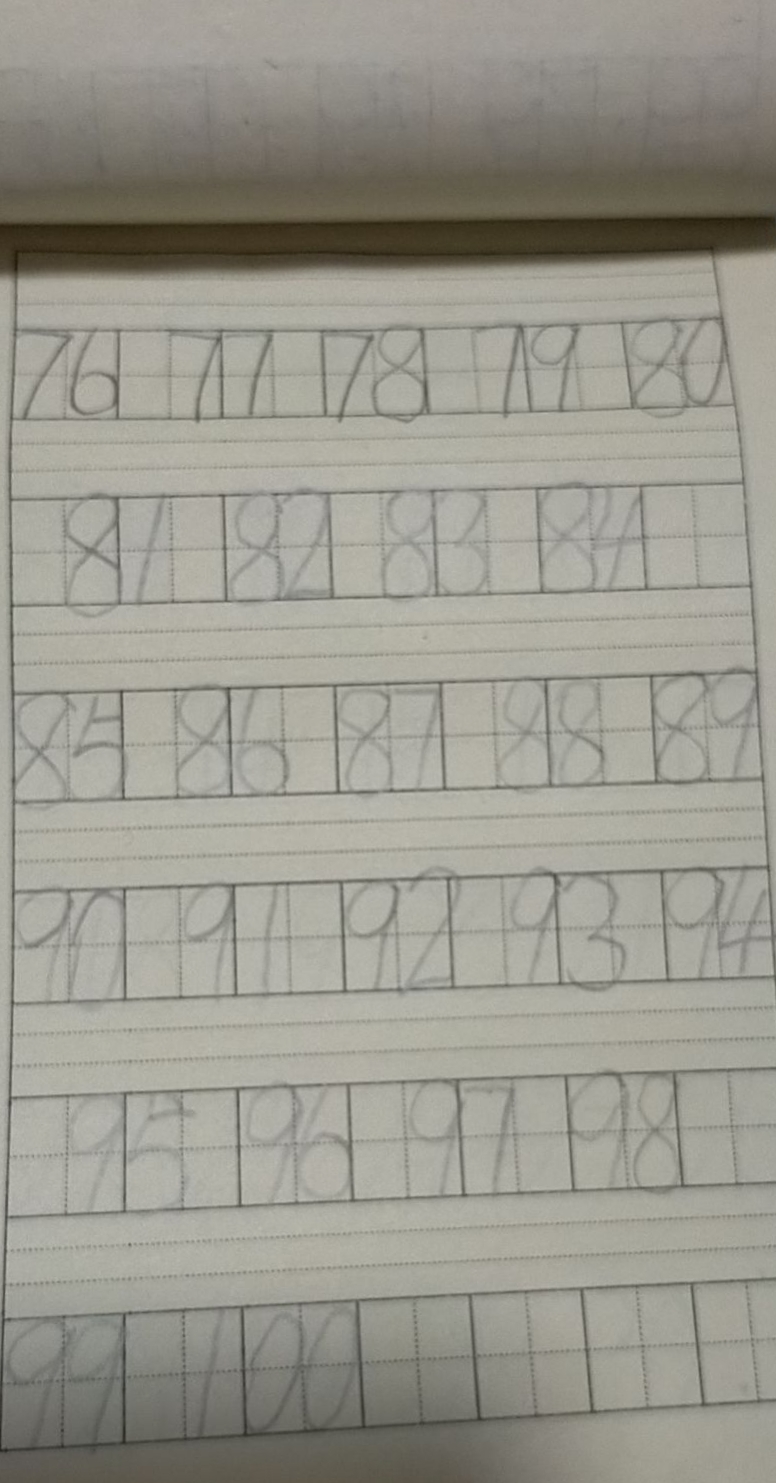 76 77 78 79 80
81 82 83 84
85 86 87 88 89
90 91 92 93 94
95 96 97 98
99 100